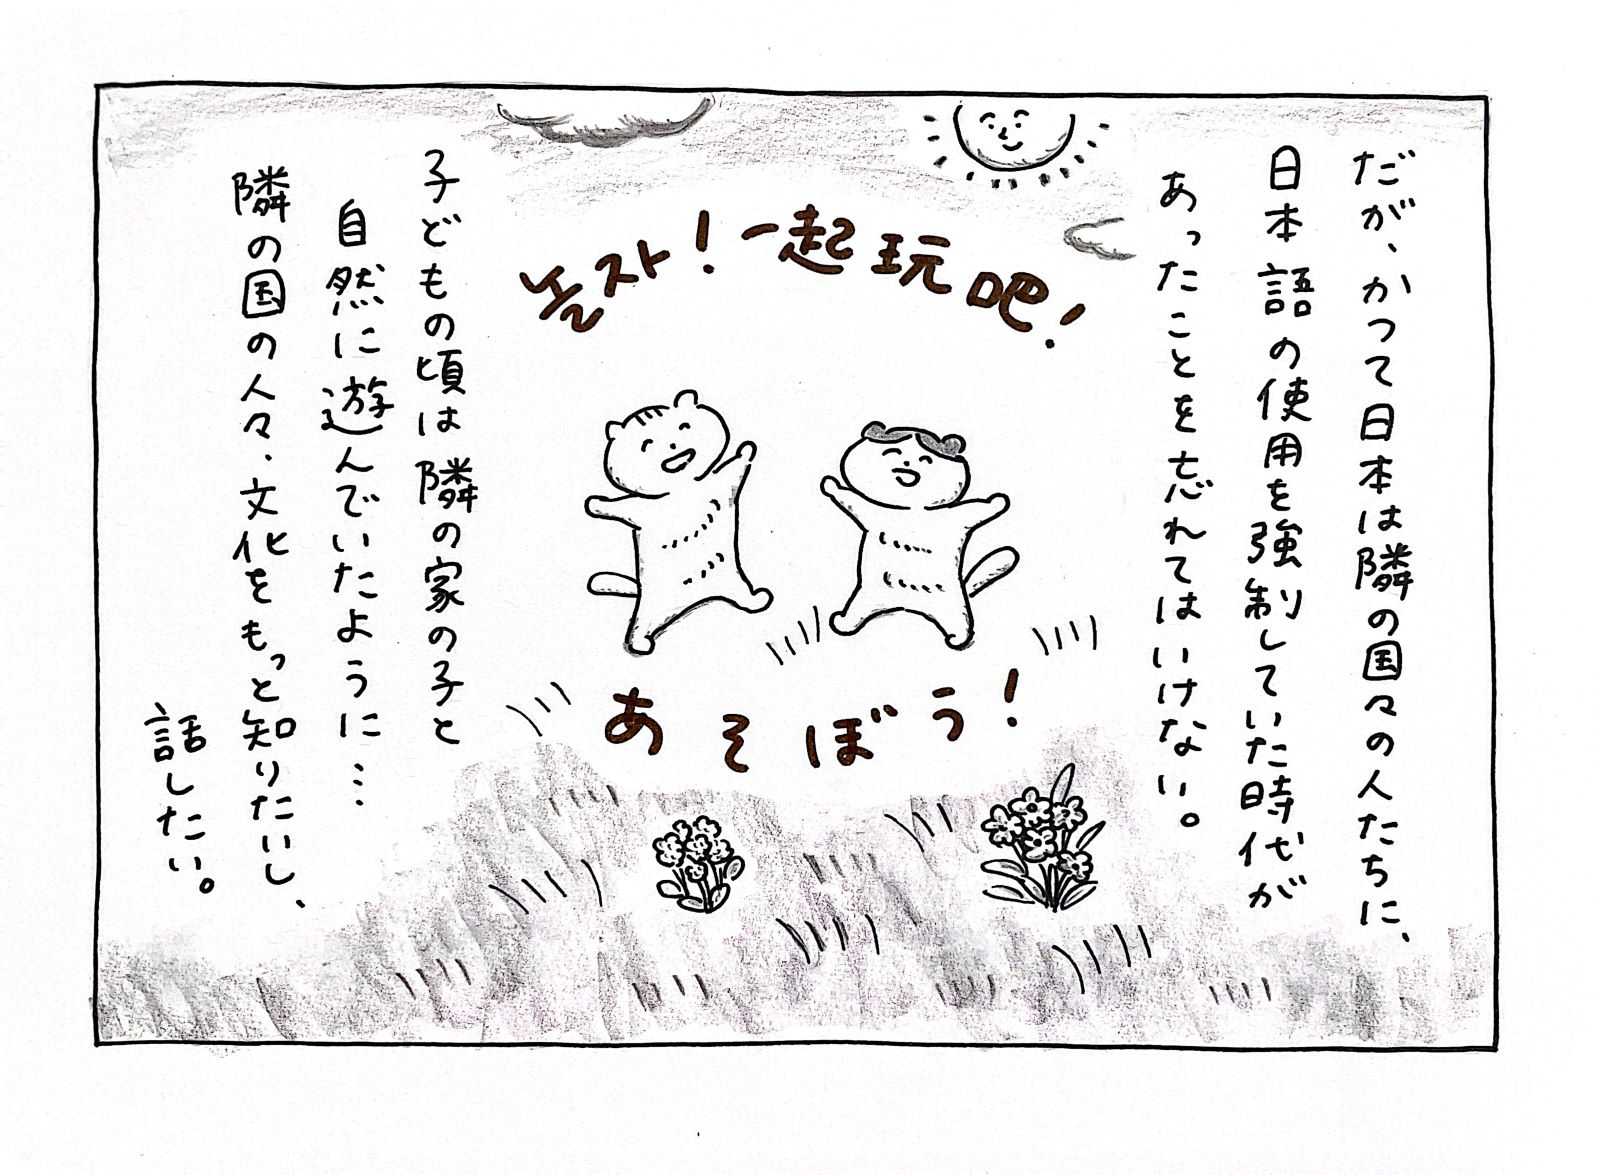 だが、かつて日本は隣の国々の人たちに、
日本語の使用を強制していた時代が
あったことを忘れてはいけない。
놀자！一起玩吧！
あそぼう！
子どもの頃は隣の家の子と
自然に遊んでいたように…
隣の国の人々、文化をもっと知りたいし、
話したい。